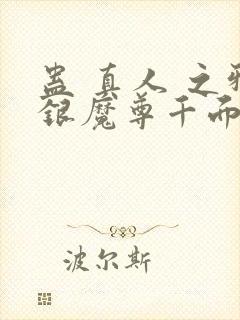 蛊真人之邪
银魔尊千而
波尔斯